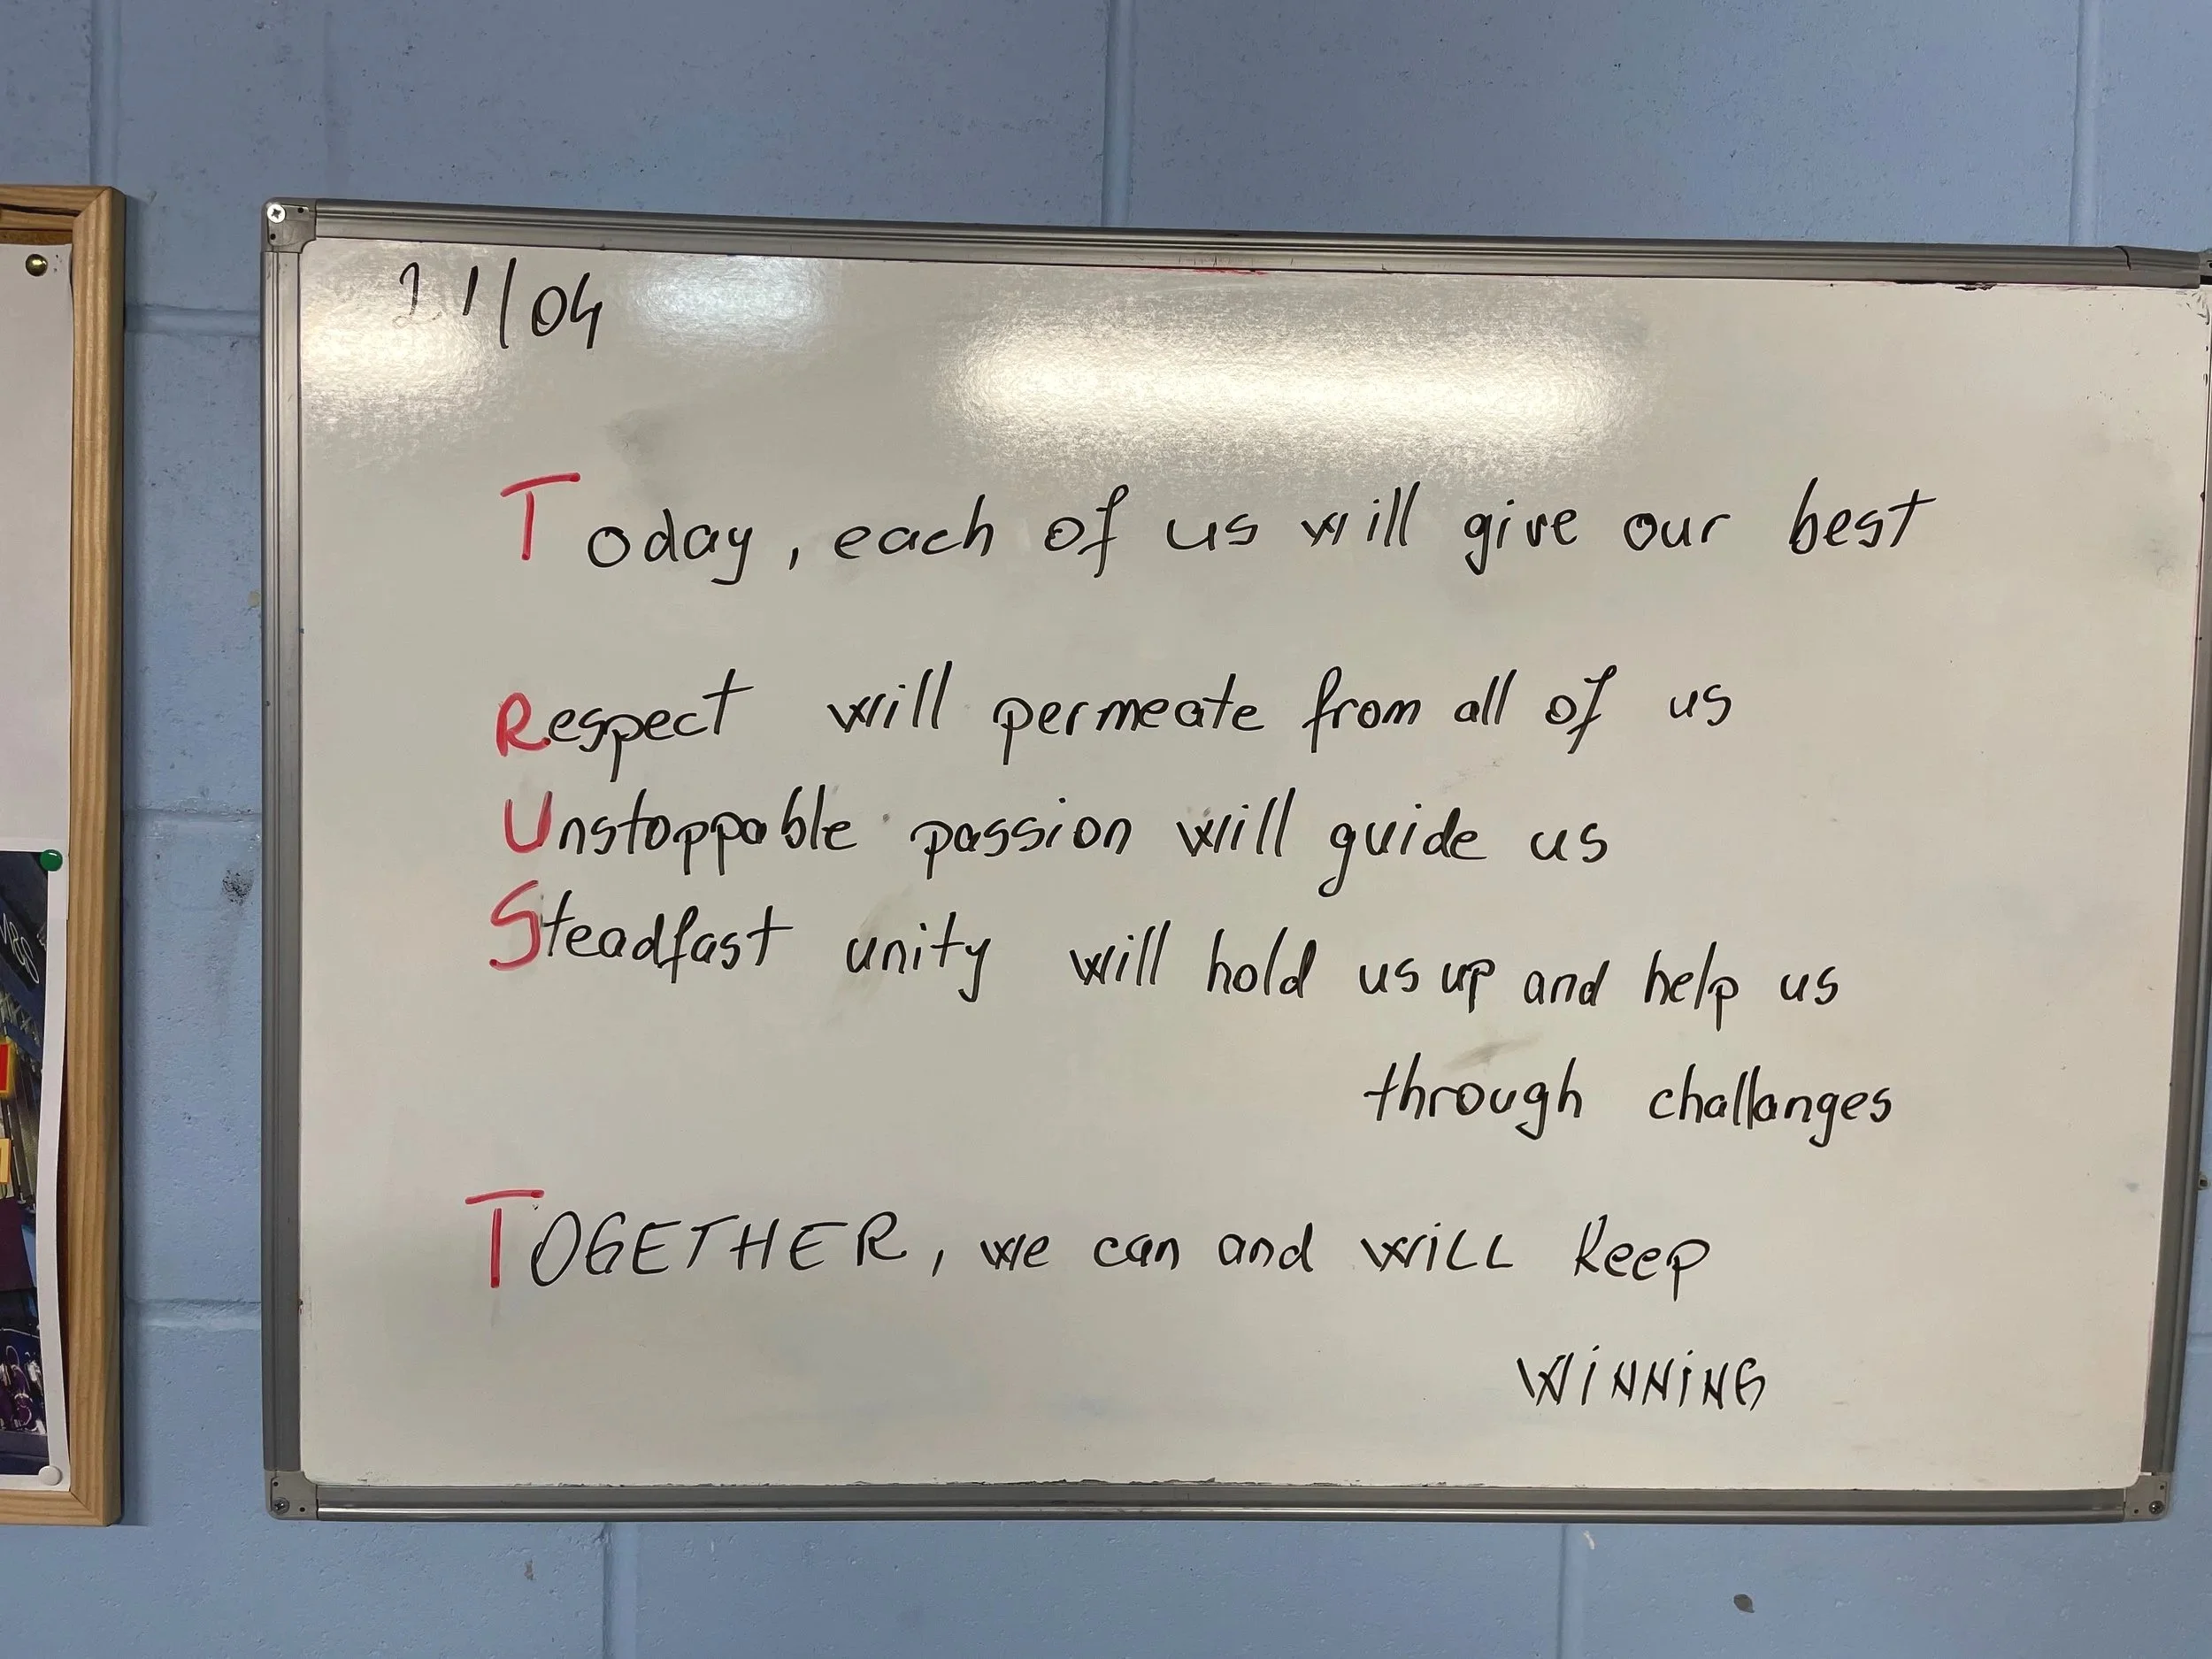 21/04
Today, each of us will give our best
Respect will permeate from all of us
Unstoppable passion will guide us
Steadfast unity will hold us up and help us
through challanges
TOGETHER, we can and WiLL keep
WiNNiNG